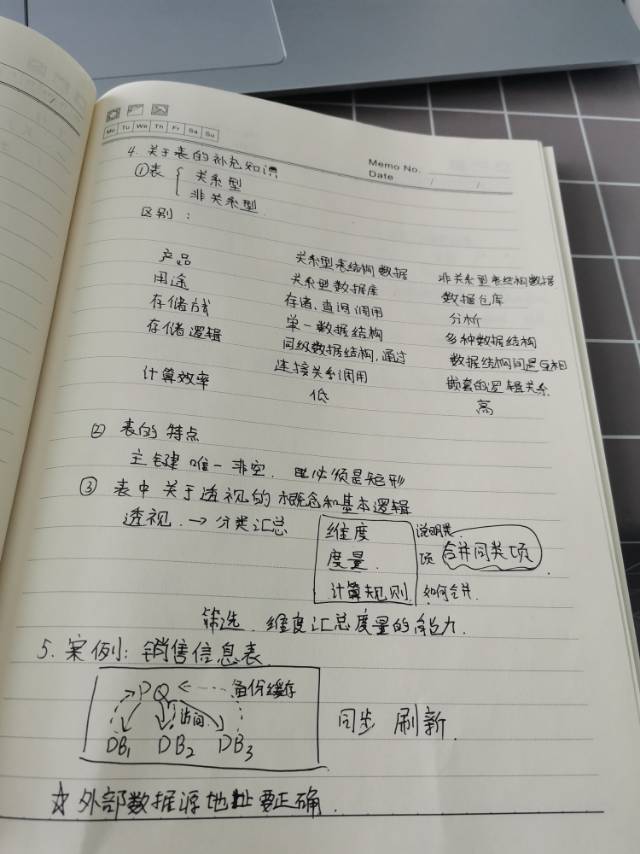 Mo Tu We Th Fr Sa Su
Memo No.
Date / /
4. 关于表的补充知识
①表 { 关系型
非关系型
区别：
产品 关系型表结构数据 非关系型表结构数据
用途 关系型数据库 数据仓库
存储方式 存储、查询调用 分析
存储逻辑 单一数据结构 多种数据结构
同级数据结构,通过 数据结构间是互相
连接关系调用 嵌套的逻辑关系
计算效率 低 高
② 表的特点
主键唯一非空. 且必须是矩形
③ 表中关于透视的概念和基本逻辑
透视. → 分类汇总 维度 说明类
度量 项 合并同类项
计算规则 如何合并.
筛选. 维度汇总度量的能力.
5. 案例: 销售信息表.
PQ ← 备份缓存
访问
DB1 DB2 DB3
同步 刷新.
☆ 外部数据源地址要正确.